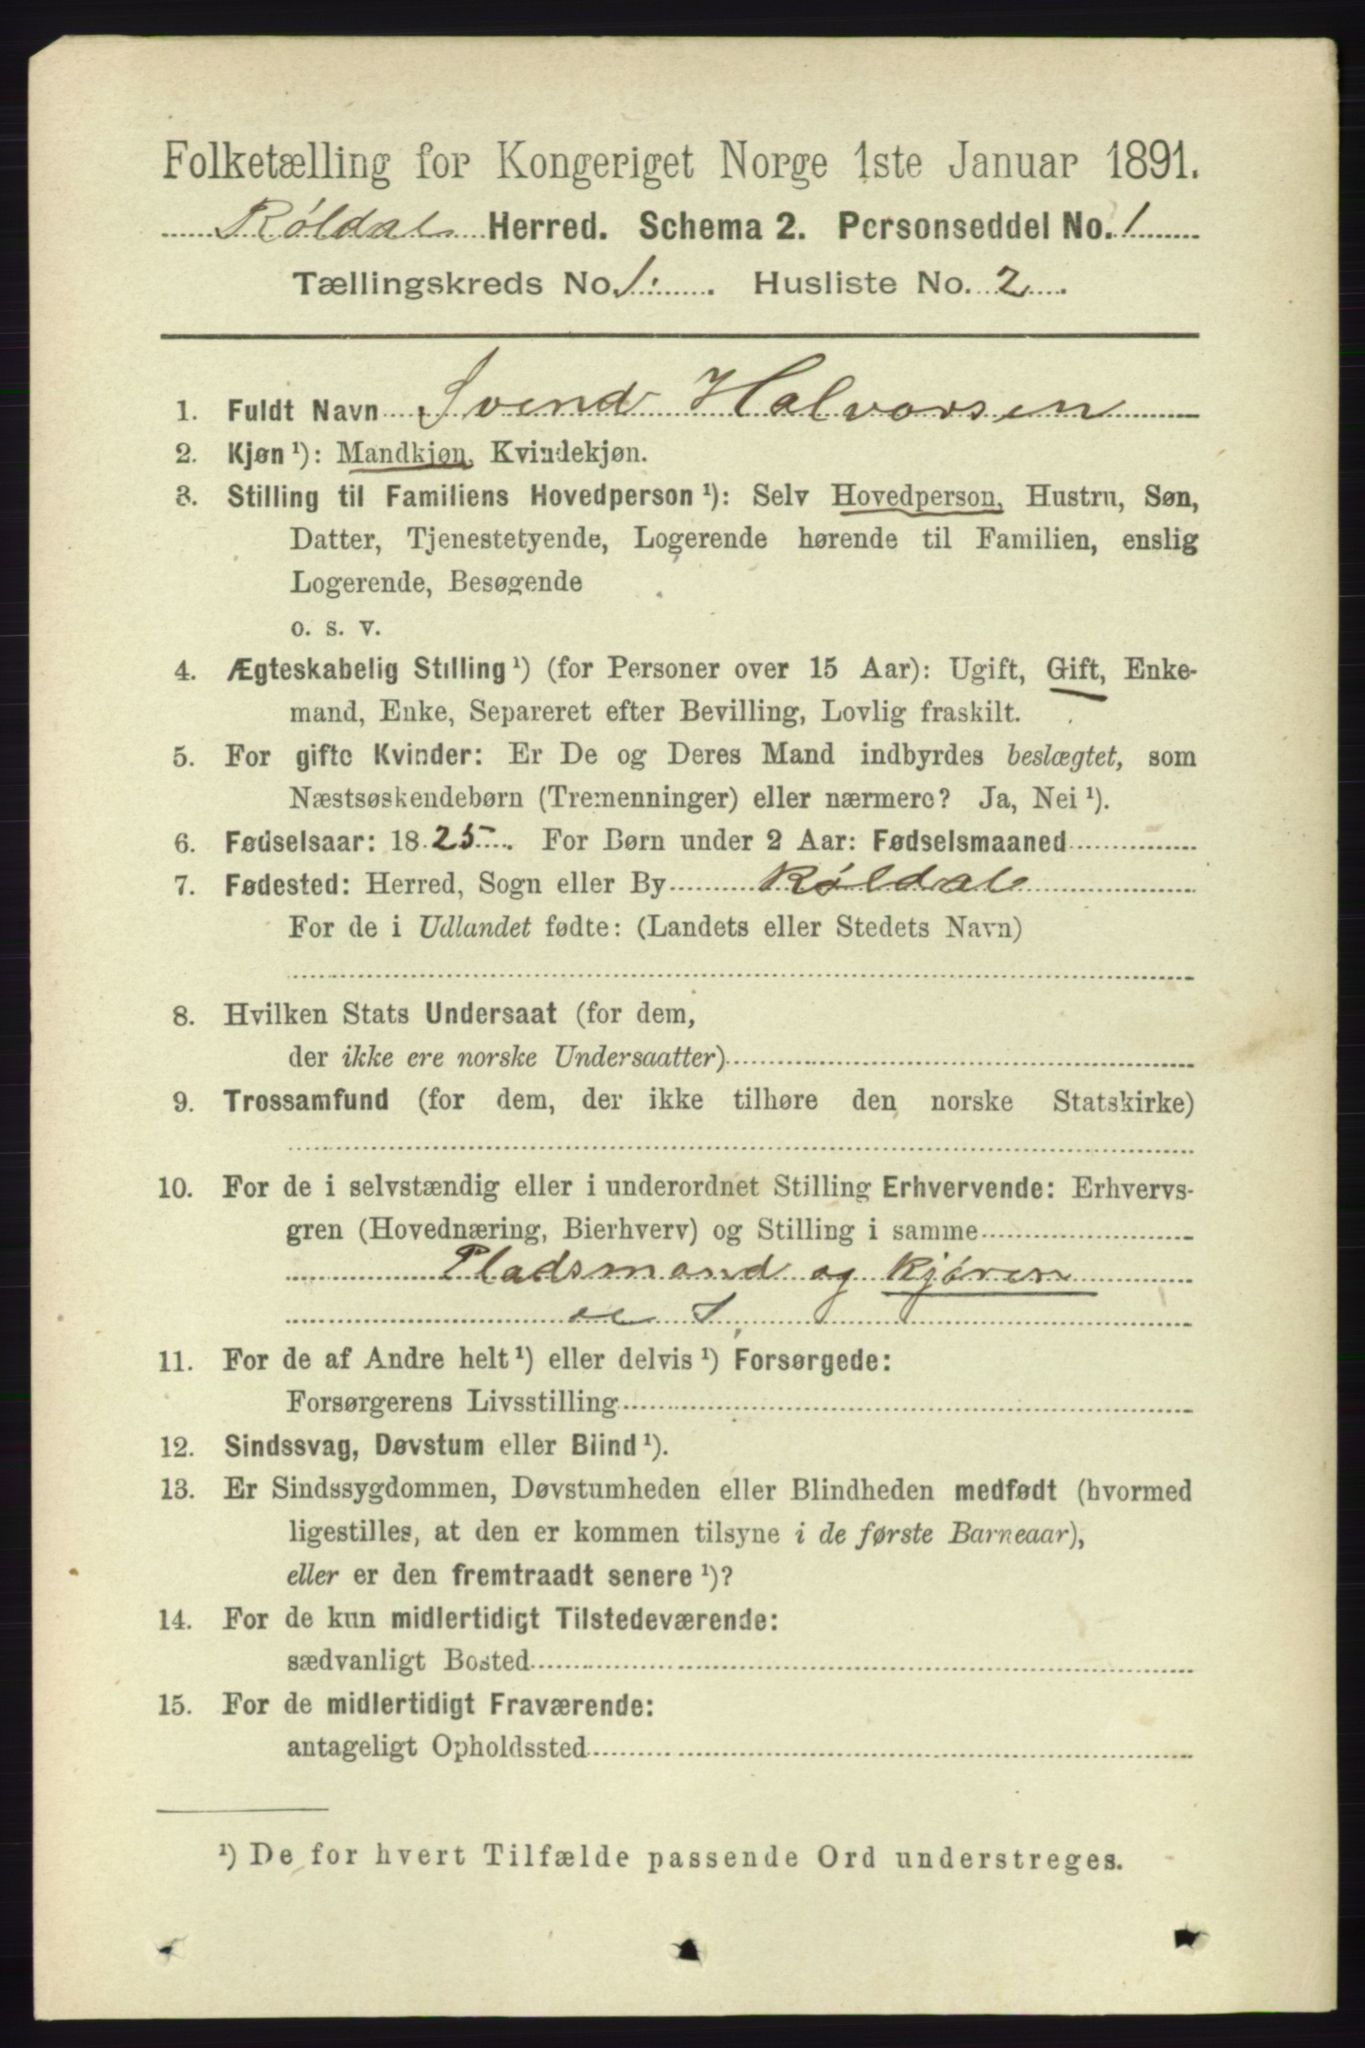 Folketælling for Kongeriget Norge 1ste Januar 1891.
Røldal Herred. Schema 2. Personseddel No. 1
Tællingskreds No. 1. Husliste No. 2.
1. Fuldt Navn Svend Halvorsen
2. Kjøn ¹): Mandkjøn, Kvindekjøn.
3. Stilling til Familiens Hovedperson ¹): Selv Hovedperson, Hustru, Søn,
Datter, Tjenestetyende, Logerende hørende til Familien, enslig
Logerende, Besøgende
o. s. v.
4. Ægteskabelig Stilling ¹) (for Personer over 15 Aar): Ugift, Gift, Enke-
mand, Enke, Separeret efter Bevilling, Lovlig fraskilt.
5. For gifte Kvinder: Er De og Deres Mand indbyrdes beslægtet, som
Næstsøskendebørn (Tremenninger) eller nærmere? Ja, Nei ¹).
6. Fødselsaar: 1825. For Børn under 2 Aar: Fødselsmaaned
7. Fødested: Herred, Sogn eller By Røldal
For de i Udlandet fødte: (Landets eller Stedets Navn)
8. Hvilken Stats Undersaat (for dem,
der ikke ere norske Undersaatter)
9. Trossamfund (for dem, der ikke tilhøre den norske Statskirke)
10. For de i selvstændig eller i underordnet Stilling Erhvervende: Erhvervs-
gren (Hovednæring, Bierhverv) og Stilling i samme
Pladsmand og
11. For de af Andre helt ¹) eller delvis ¹) Forsørgede:
Forsørgerens Livsstilling
12. Sindssvag, Døvstum eller Blind ¹).
13. Er Sindssygdommen, Døvstumheden eller Blindheden medfødt (hvormed
ligestilles, at den er kommen tilsyne i de første Barneaar),
eller er den fremtraadt senere ¹)?
14. For de kun midlertidigt Tilstedeværende:
sædvanligt Bosted
15. For de midlertidigt Fraværende:
antageligt Opholdssted
¹) De for hvert Tilfælde passende Ord understreges.